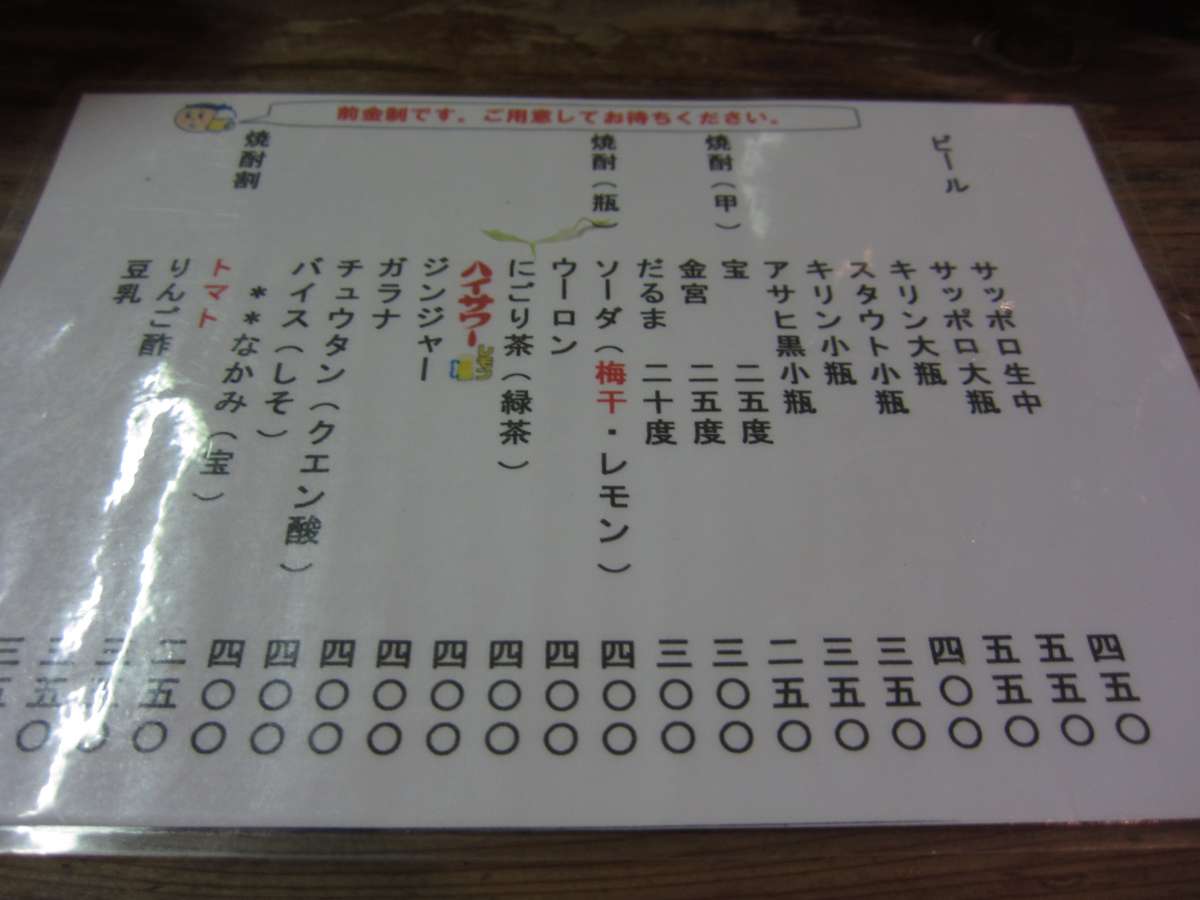 前金制です。ご用意してお待ちください。
ビール サッポロ生中 四五〇
サッポロ大瓶 五五〇
キリン大瓶 五五〇
スタウト小瓶 四〇〇
キリン小瓶 三五〇
アサヒ黒小瓶 三五〇
焼酎(甲) 宝 二五度 二五〇
金宮 二五度 三〇〇
だるま 二十度 三〇〇
焼酎(瓶) ソーダ(梅干・レモン) 四〇〇
ウーロン 四〇〇
にごり茶(緑茶) 四〇〇
ハイサワー 四〇〇
ジンジャー 四〇〇
ガラナ 四〇〇
チュウタン(クエン酸) 四〇〇
バイス(しそ) 四〇〇
**なかみ(宝) 二五〇
焼酎割 トマト
りんご酢 三五〇
豆乳 三五